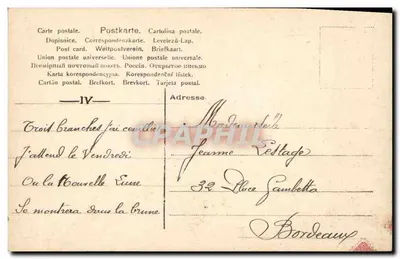 Carte postale. Postkarte. Cartolina postale.
Dopisnice. Correspondenzkarte. Levelező-Lap.
Post card. Weltpostverein. Briefkaart.
Union postale universelle. Unione postale universale.
Всемірный почтовый союзъ. Россія. Открытое письмо
Karta korespondencyjna. Korespondenční lístek.
Cartão postal. Brefkort. Brevkort. Tarjeta postal.
IV
Adresse.
Trois branches j'ai cueillie
J'attend le Vendredi
Ou la Nouvelle Lune
Se montrera dans la brune
Mademoiselle
Jeanne Lestage
32 Place Gambetta
Bordeaux